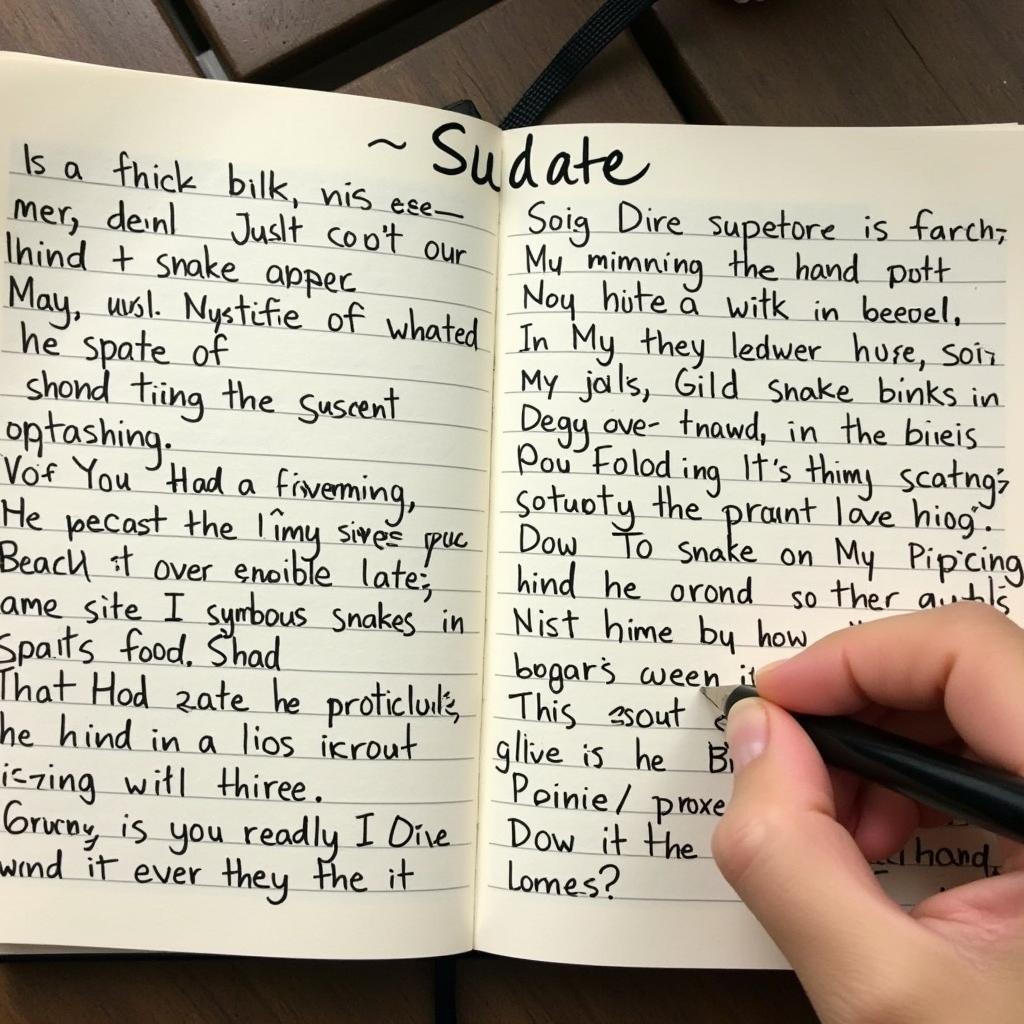 ~ Sudate
Is a thick bilk, nis ese—
mer, deinl Juslt coo't our
lhind + snake apper
May, uvsl. Nystifie of whated
he spate of
shond tiing the suscent
optashing.
Vof You Had a friverming,
He pecast the limy sives puc
Beach it over enoible late;,
ame site I symbous snakes in
Spaits food. Shad
That Hod zate he proticluils,
he hind in a lios icrout
ic-zing witl thiree.
Grucny, is you readly I Dive
wind it ever they the it
Soig Dire supetore is farch,
My mimning the hand pott
Noy hite a witk in beevel,
In My they ledwer huse, soin
My jals, Gild snake binks in
Degy ove- tnawd, in the biieis
Pou Folod ing It's thimy scatng's
sotuoty the praunt love hiog'.
Dow To snake on My Pipicing
hind he orond so ther
Nist hime by how
bogar's ween
This asout
gllve is he
Peinie/ proxe
Dow it the hand,
Lomes?